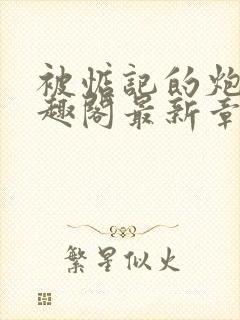 被惦记的炮
趣阁最新章
繁星似火